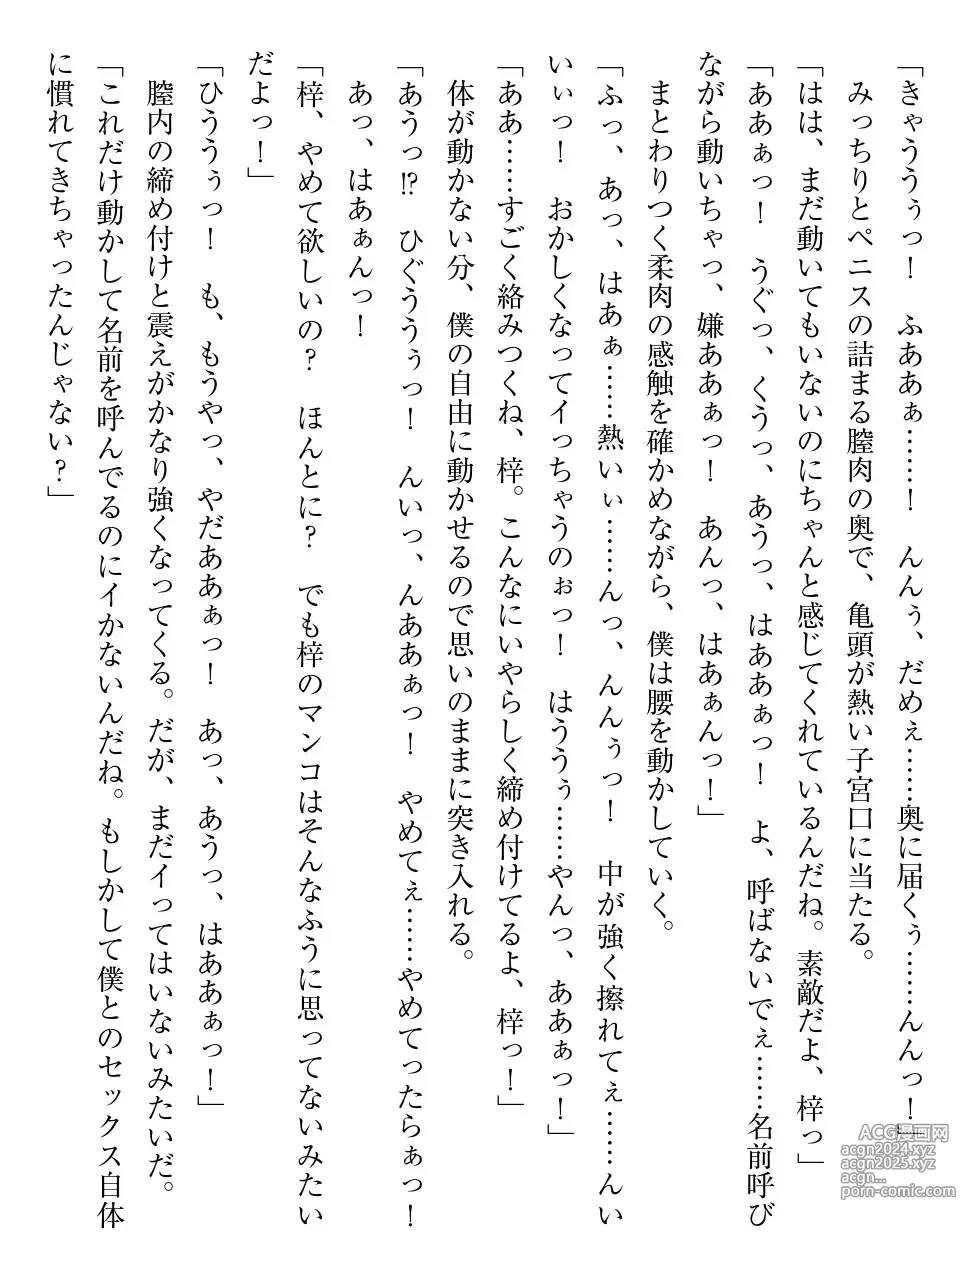 「きゃううぅっ！　ふああぁ……！　んんぅ、だめぇ……奥に届くぅ……んんっ！」
　みっちりとペニスの詰まる膣肉の奥で、亀頭が熱い子宮口に当たる。
「はは、まだ動いてもいないのにちゃんと感じてくれているんだね。素敵だよ、梓っ」
「ああぁっ！　うぐっ、くうっ、あうっ、はああぁっ！　よ、呼ばないでぇ……名前呼び
ながら動いちゃっ、嫌ああぁっ！　あんっ、はあぁんっ！」
　まとわりつく柔肉の感触を確かめながら、僕は腰を動かしていく。
「ふっ、あっ、はあぁ……熱いぃ……んっ、んんぅっ！　中が強く擦れてぇ……んいい
いぃっ！　おかしくなってイっちゃうのぉっ！　はううぅ……やんっ、ああぁっ！」
「ああ……すごく絡みつくね、梓。こんなにいやらしく締め付けてるよ、梓っ！」
　体が動かない分、僕の自由に動かせるので思いのままに突き入れる。
「あうっ!?　ひぐううぅっ！　んいっ、んああぁっ！　やめてぇ……やめてったらぁっ！
あっ、はあぁんっ！
「梓、やめて欲しいの？　ほんとに？　でも梓のマンコはそんなふうに思ってないみたい
だよっ！」
「ひううぅっ！　も、もうやっ、やだああぁっ！　あっ、あうっ、はああぁっ！」
　膣内の締め付けと震えがかなり強くなってくる。だが、まだイってはいないみたいだ。
「これだけ動かして名前を呼んでるのにイかないんだね。もしかして僕とのセックス自体
に慣れてきちゃったんじゃない？」
ACG漫画网
acgn2024.xyz
acgn2025.xyz
acgn...
porn-comic.com